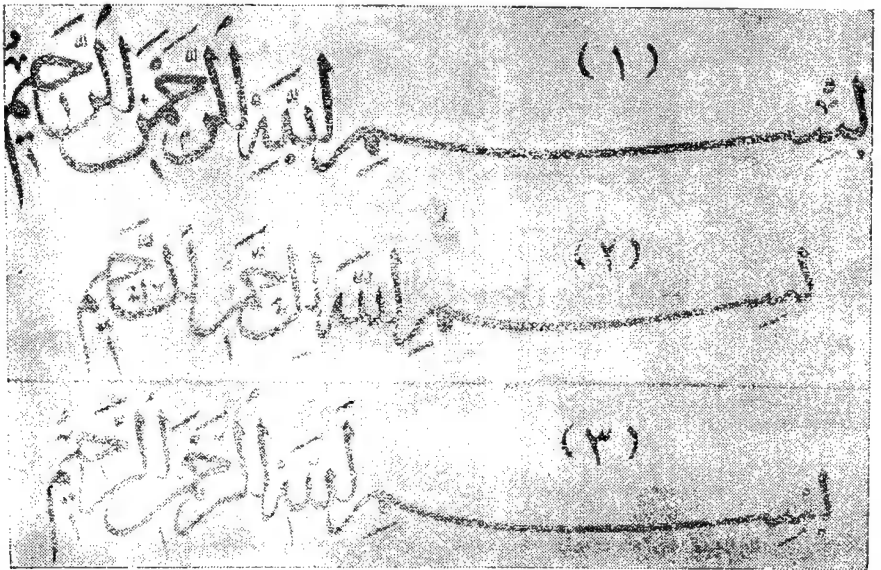 (١) بِسْمِ اللَّهِ الرَّحْمَنِ الرَّحِيمِ
(٢) بسمِ اللَّه الرحمن الرحيم
(٣) بسمِ اللَّه الرحمن الرحيم